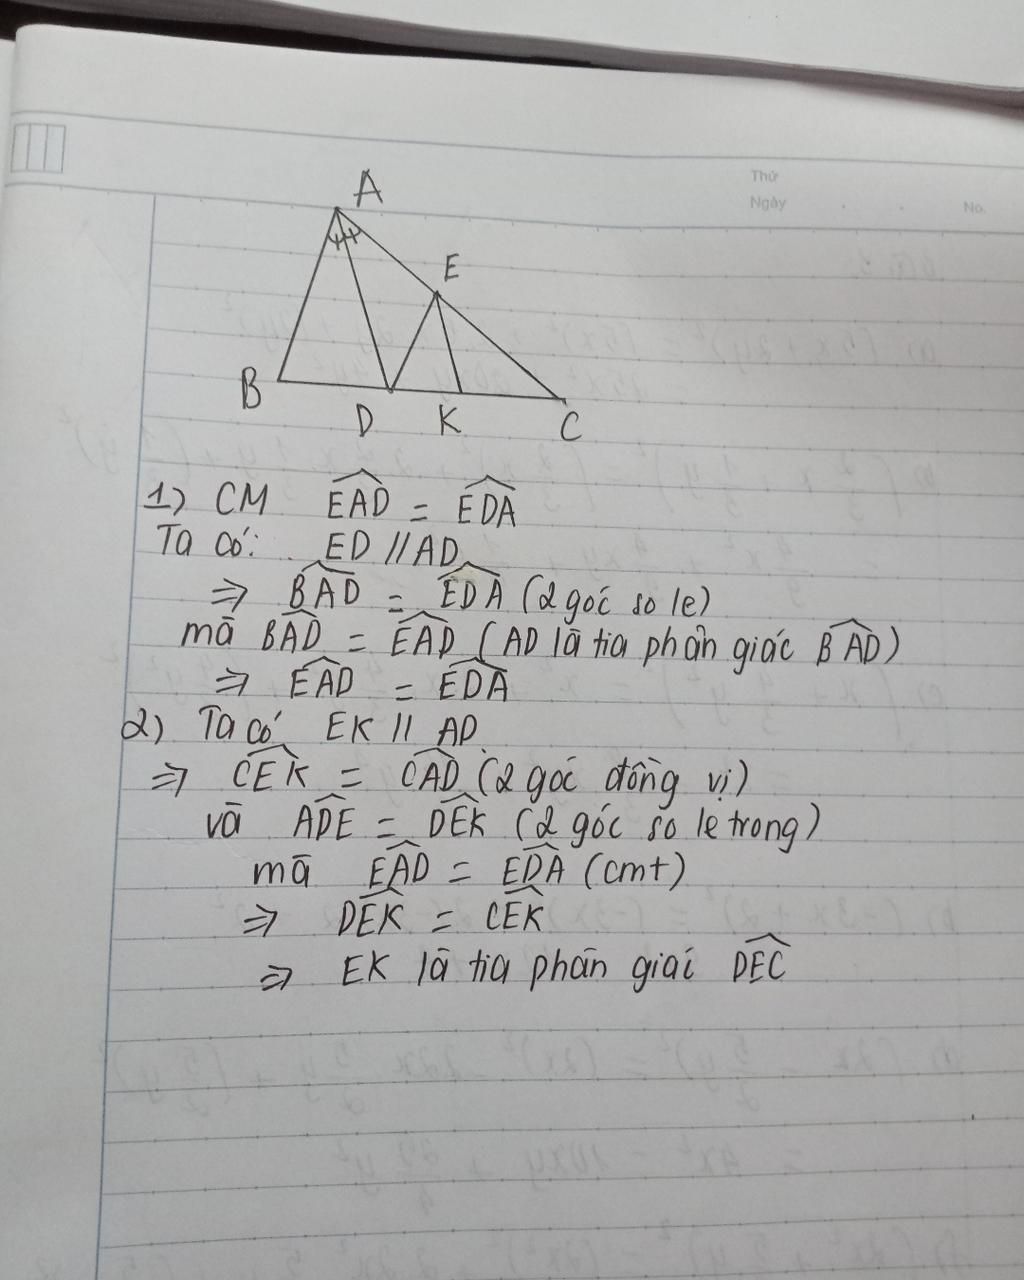 Thứ
Ngày . . No.
A
E
B
D K C
1) CM EAD = EDA
Ta có: ED // AD
=> BAD = EDA (2 góc so le)
mà BAD = EAD (AD là tia phân giác BAD)
=> EAD = EDA
2) Ta có EK // AD
=> CEK = CAD (2 góc đồng vị)
và ADE = DEK (2 góc so le trong)
mà EAD = EDA (cmt)
=> DEK = CEK
=> EK là tia phân giác DEC